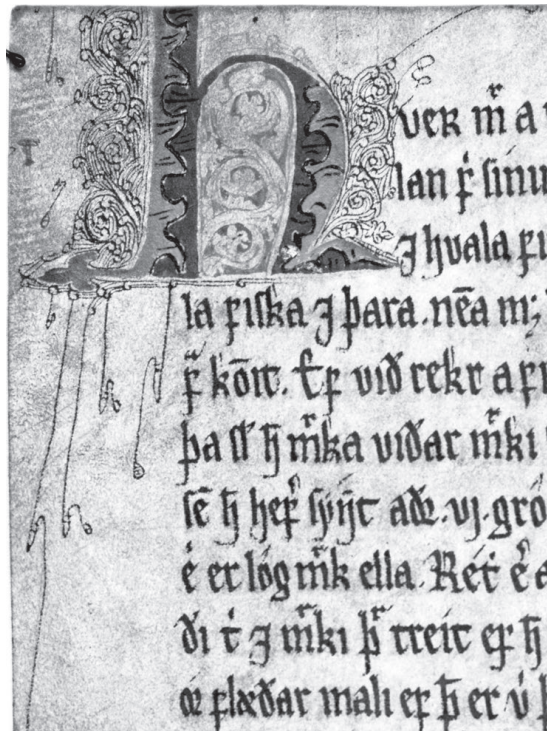 HVER m̄ a
lan ꝼ͛ sinu
⁊ hvala ꝼu
la ꝼiska ⁊ þara. nēa m;
ꝼ͛ kōit. Eꝼ við rekr a ꝼi
þa sl̄ ħ m͛ka viðar m͛ki
sē ħ heꝼ͛ synt aðꝛ. vj. grỏ
e͛ er lỏg m͛k ella. Rét e͛ a
ði t͛ ⁊ m͛ki þ͛ treit eꝼ ħ
oꝛ ꝼlæðar mali eꝼ þ̄ er v͛